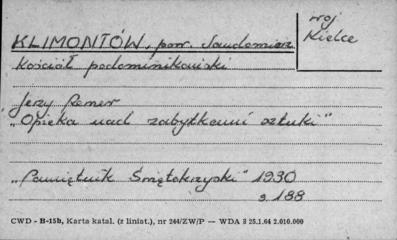 woj
Kielce
KLIMONTÓW, pow. Sandomierz
kościół podominikański
Jerzy Remer
„Opieka nad zabytkami sztuki"
„Pamiętnik Świętokrzyski" 1930
s. 188
CWD - B-15b, Karta katal. (z liniat.), nr 244/ZW/P — WDA z 25.1.64 2.010.000